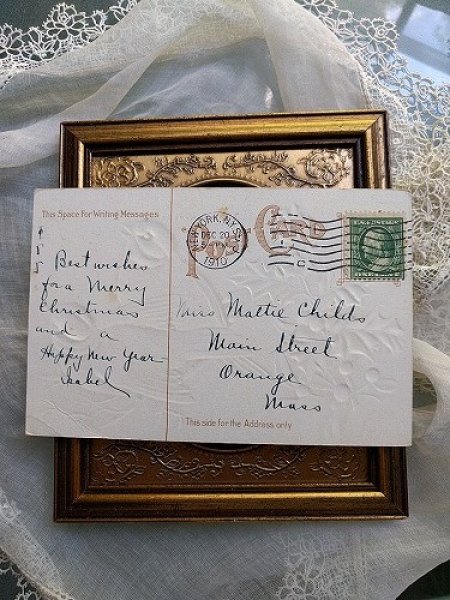 This Space For Writing Messages
Post Card
NEW YORK, N.Y.
DEC 20
1910
C
Best wishes
for a Merry
Christmas
and a
Happy New Year
Isabel
Miss Mattie Childs
Main Street
Orange
Mass
This side for the Address only